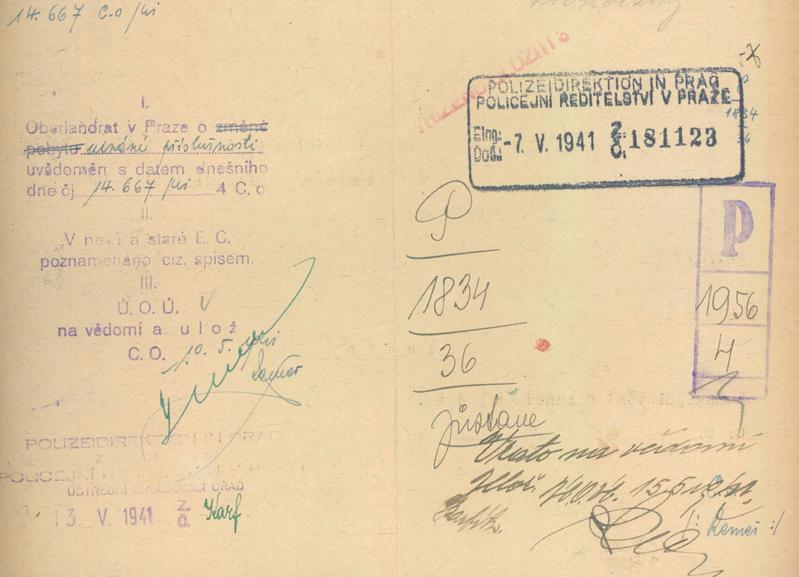 14.667 C.o/41
I.
Oberlandrat v Praze o změně
pobytu uznání příslušnosti
uvědoměn s datem dnešního
dne čj. 14.667/41 4 C. o
II.
V nové a staré E. C.
poznamenáno ciz. spisem.
III.
Ú. O. Ú.
na vědomí a ulož
C. O. 10. 5.
POLIZEIDIREKTION IN PRAG
POLICEJNÍ ŘEDITELSTVÍ V
ÚSTŘEDNÍ OHLAŠOVACÍ ÚŘAD
13. V. 1941 Z. Č. Karf.
POLIZEIDIREKTION IN PRAG
POLICEJNÍ ŘEDITELSTVÍ V PRAZE
Eing.: Došl: -7. V. 1941 Z.: Č. 181123
1834
P
1834
36
zůstane
P
1956
4
Vzato na vědomí
/: Remeš :/